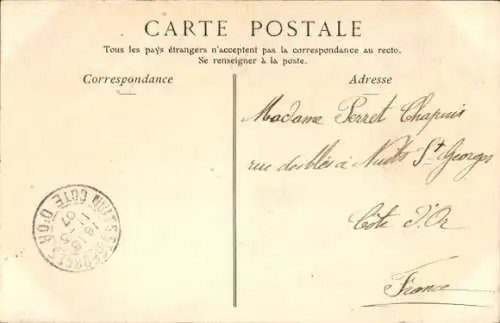 CARTE POSTALE
Tous les pays étrangers n'acceptent pas la correspondance au recto.
Se renseigner à la poste.
Correspondance
Adresse
Madame Perret Chapuis
rue des blés à Nuits St Georges
Côte d'Or
France
NUITS-ST-GEORGES
COTE D'OR